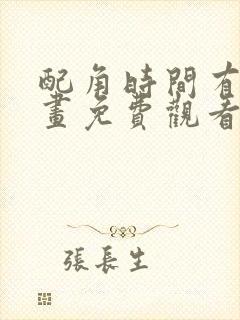 配角時間有
畫免費觀看
張長生